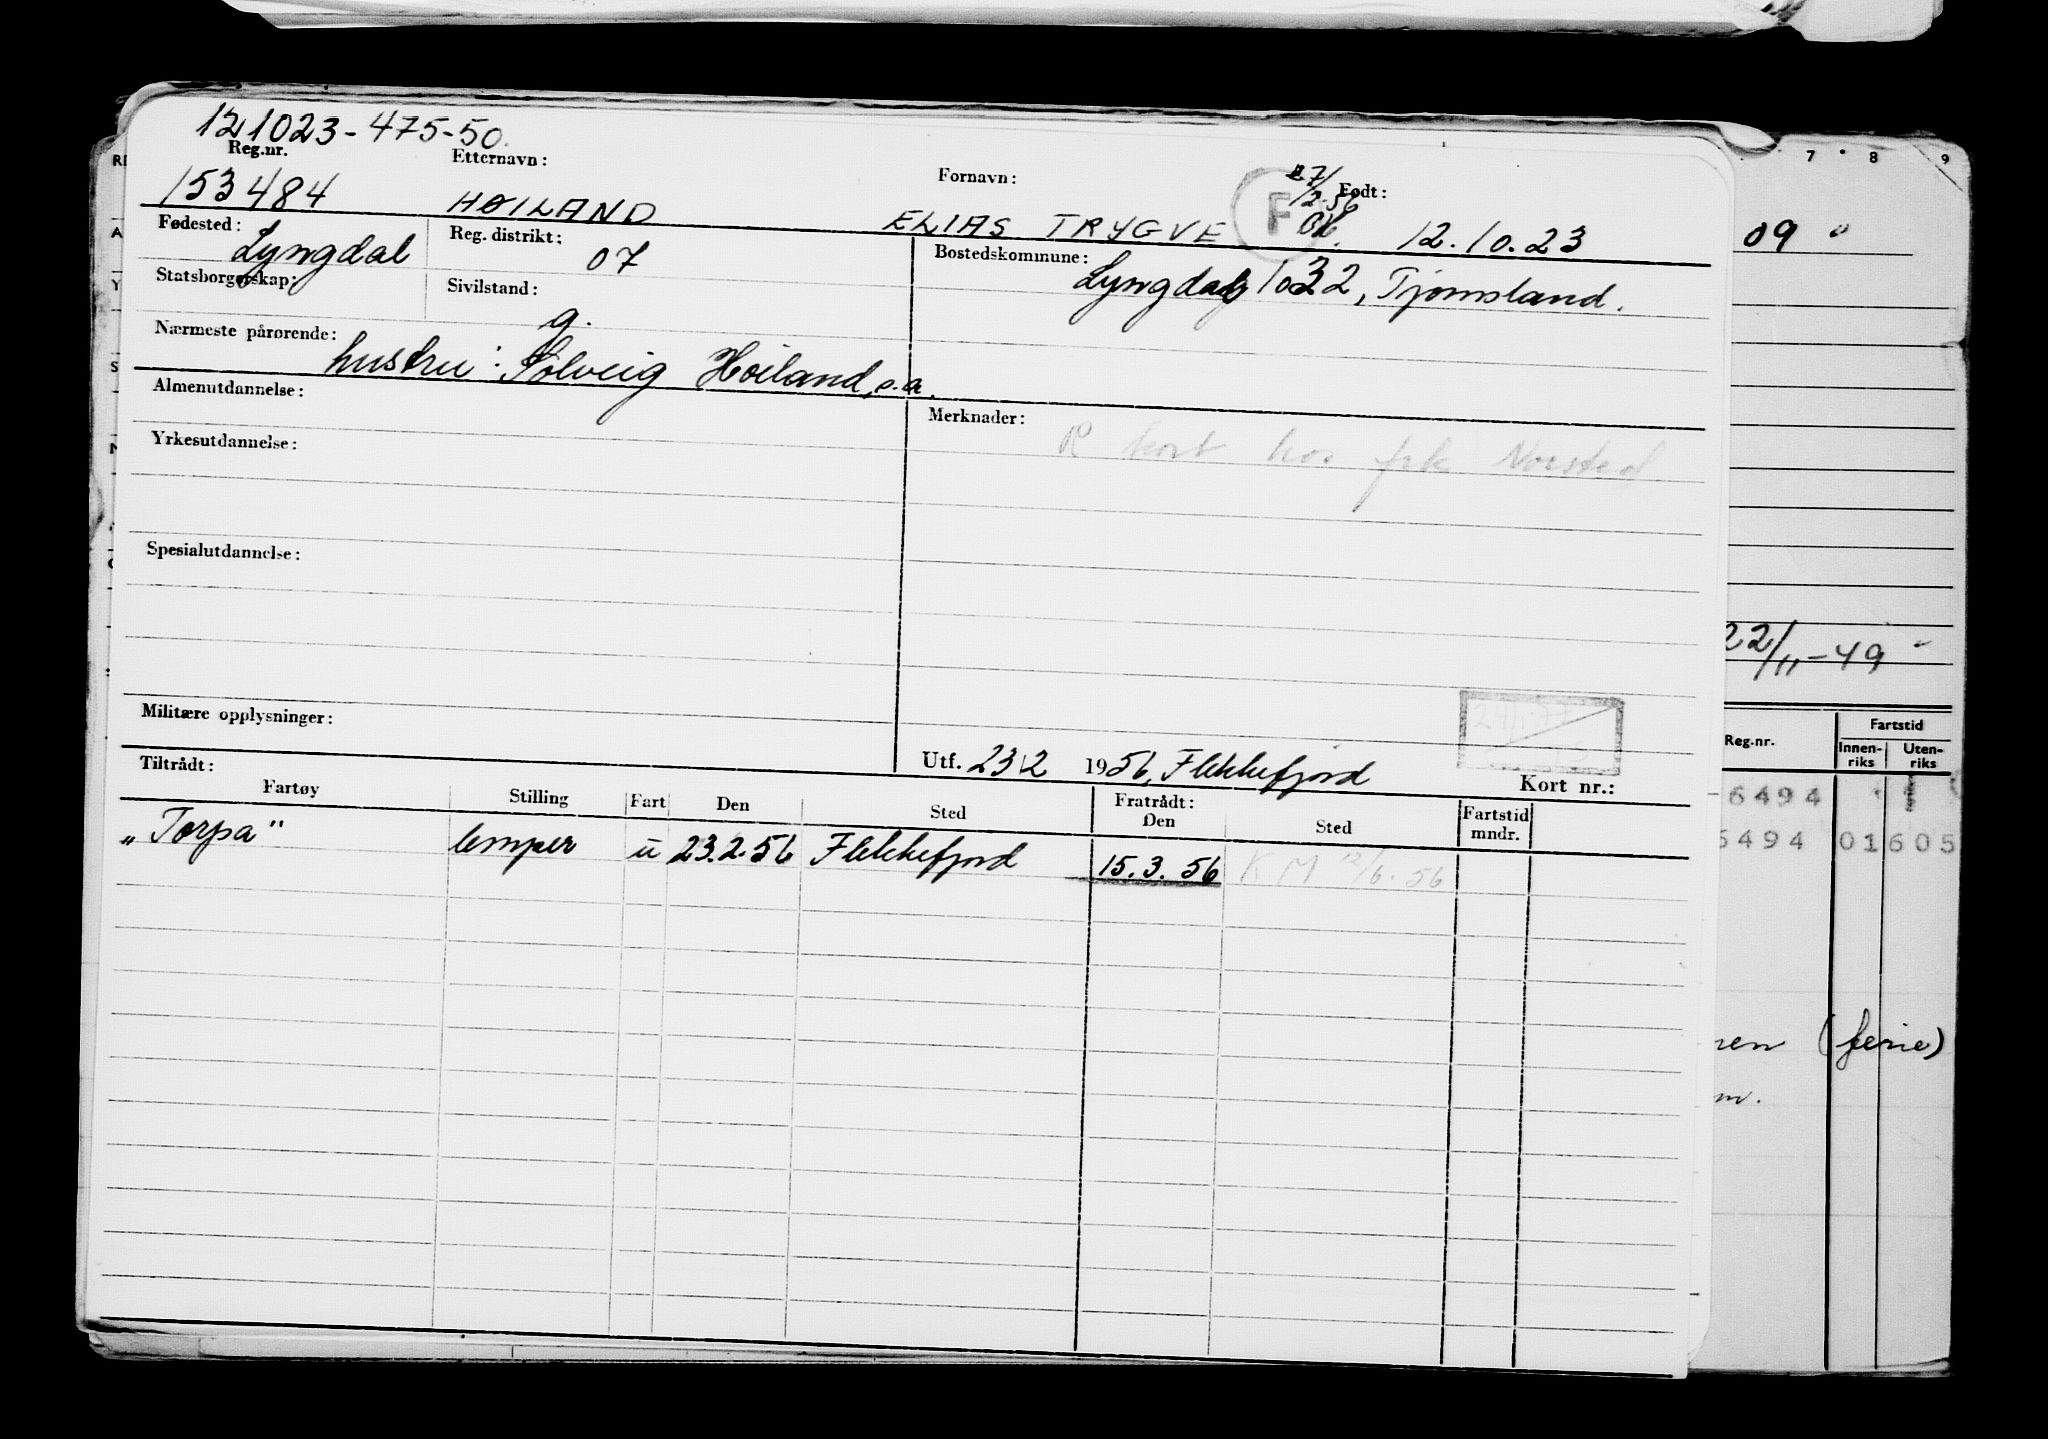 121023-475-50.
Reg.nr. Etternavn: Fornavn: Født:
153484 HØILAND ELIAS TRYGVE F 27/2-56 12.10.23
Fødested: Lyngdal Reg. distrikt: 07 Bostedskommune: Lyngdal 1032, Tjomsland.
Statsborgerskap: Sivilstand: g.
Nærmeste pårørende: hustru: Solveig Høiland, s.a.
Almenutdannelse: Merknader:
R kort hos frk Norsted
Yrkesutdannelse:
Spesialutdannelse:
Militære opplysninger:
Utf. 23\2 1956, Flekkefjord Kort nr.:
Tiltrådt: Fratrådt:
Fartøy Stilling Fart Den Sted Den Sted Fartstid mndr.
"Torpa" lemper u 23.2.56 Flekkefjord 15.3.56 KM 12/6.56
7 8 9
09
22/11-49
Reg.nr. Fartstid
Innen-riks Uten-riks
6494
6494 01605
(ferie)
m.